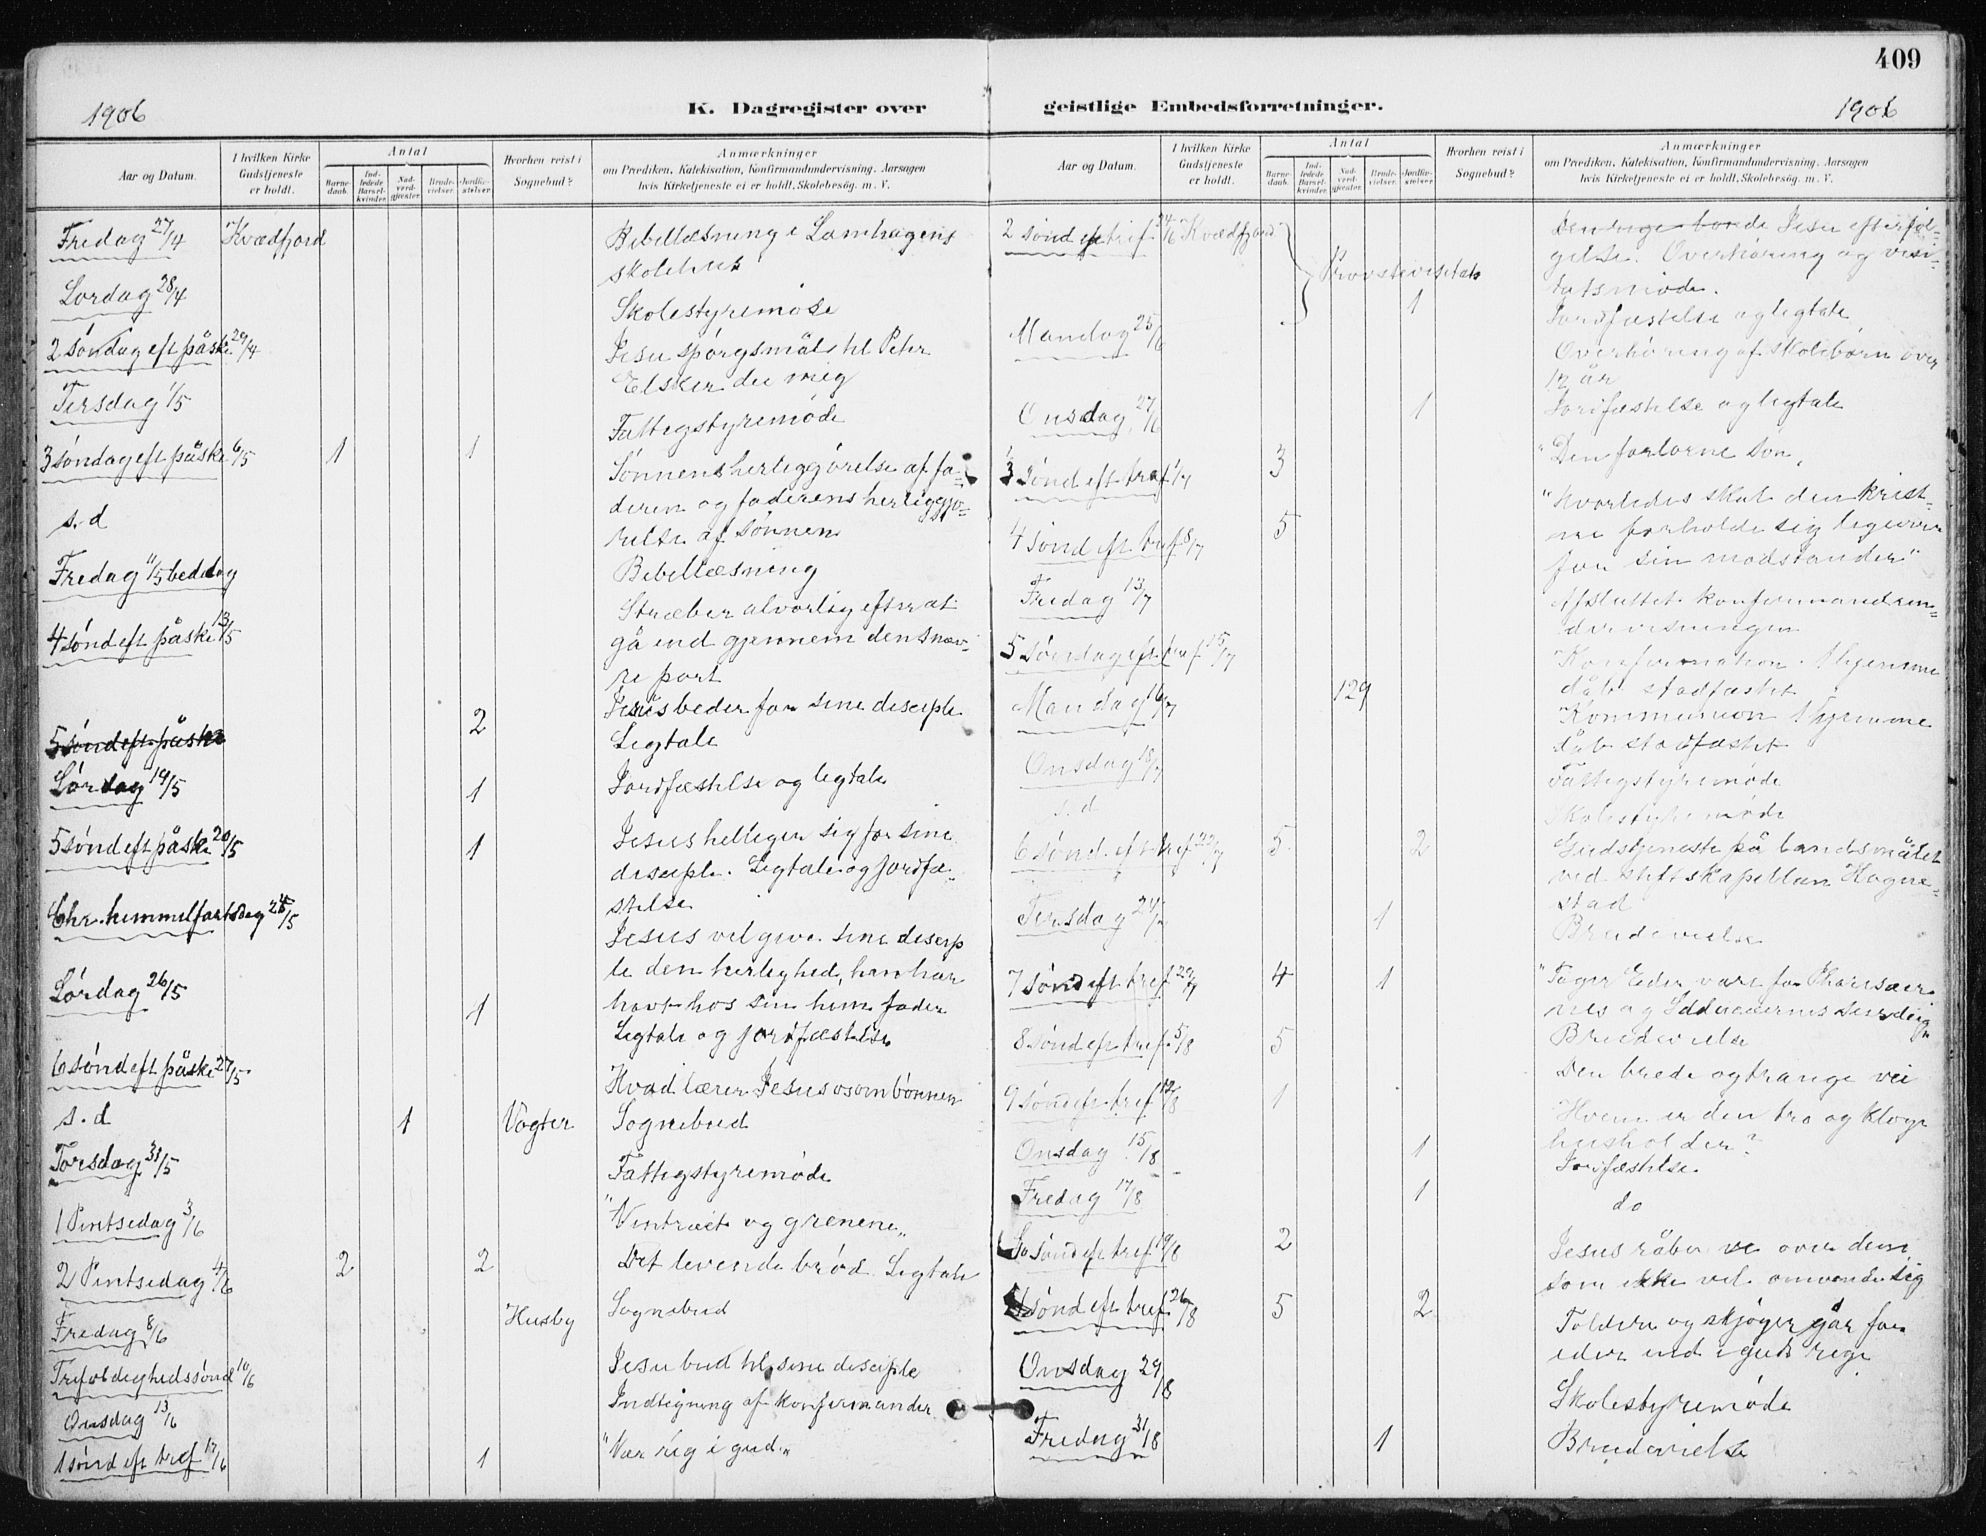 409
1906
K. Dagregister over
geistlige Embedsforretninger.
1906
Aar og Datum.
I hvilken Kirke Gudstjeneste er holdt.
Antal
Barnedaab.
Indledede Barselkvinder.
Nadverdgjester.
Brudevielser.
Jordfæstelser.
Hvorhen reist i Sognebud?
Anmærkninger
om Prædiken, Katekisation, Konfirmandundervisning. Aarsagen
hvis Kirketjeneste ei er holdt. Skolebesøg. m. V.
Fredag 27/4 Kvædfjord Bibellæsning i
skolehus
Lørdag 28/4
Skolestyremøde
2 søndag eft påske 29/4 Jesu spørgsmål til Peter
Elsker du mig
Tirsdag 1/5
Fattigstyremøde
3 søndag eft påske 6/5 1 1
Sønnens herliggjørelse af fa-
deren og faderens herliggjø-
relse af sønnen
s. d
Bibellæsning
Fredag 11/5 bededag
Stræber alvorlig efter at
gå ind gjennem den snæv-
re port
4 sønd eft påske 13/5
Jesus beder for sine disciple
2 Ligtale
5 sønd eft påske
Lørdag 19/5 1 Jordfæstelse og ligtale
5 sønd eft påske 20/5 1 Jesus helliger sig for sine
disciple. Ligtale og jordfæ-
stelse
Chr. himmelfartsdag 24/5
Jesus vil give sine discip
le den herlighed, han har
havt hos sin him. fader
Lørdag 26/5 1
Ligtale og jordfæstelse
6 sønd eft påske 27/5
Hvad lærer Jesus os om bønnen
s. d 1 Vogter Sognebud
Torsdag 31/5 Fattigstyremøde
1 Pintsedag 3/6 "Vintræet og grenene"
2 Pintsedag 4/6 2 2 Det levende brød. Ligtale
Fredag 8/6 Husby Sognebud
Trefoldighedssønd 10/6 Jesu bud til sine disciple
Onsdag 13/6 Indtegning af konfirmander
1 sønd eft tref 17/6 1 "Vær rig i gud"
Aar og Datum.
I hvilken Kirke Gudstjeneste er holdt.
Antal
Barnedaab.
Indledede Barselkvinder.
Nadverdgjester.
Brudevielser.
Jordfæstelser.
Hvorhen reist i Sognebud?
Anmærkninger
om Prædiken, Katekisation, Konfirmandundervisning. Aarsagen
hvis Kirketjeneste ei er holdt. Skolebesøg. m. V.
2 sønd eft tref 24/6 Kvædfjord Provstevisitats
Jesu efterføl-
gelse. Overhøring og visi-
tatsmøde.
1 Jordfæstelse og ligtale
Mandag 25/6 Overhøring af skolebørn over
12 år
Onsdag 27/6 1 Jordfæstelse og ligtale
3 sønd eft tref 1/7 3 "Den fortorne søn"
4 sønd eft tref 8/7 5 "Hvorledes skal den krist-
ne forholde sig ligeover
for sin modstander"
Fredag 13/7 Afsluttet konfirmandun-
dervisningen
5 søndag eft tref 15/7 Konfirmation. 1 hjemme
dåb stadfæstet
Mandag 16/7 129 Kommunion 1 hjemme
dåb stadfæstet
Onsdag 18/7 Fattigstyremøde
s. d Skolestyremøde
6 sønd. eft tref 22/7 5 2 Gudstjeneste på landsmålet
ved stiftskapellan Hogne-
stad
Tirsdag 24/7 1 Brudevielse
7 sønd eft tref 29/7 4 1 "Tager Eder vare for Pharisæer-
nes og Sadducæernes surdeig"
Brudevielse
8 sønd eft tref 5/8 5 Den brede og trange vei
9 sønd eft tref 12/8 1 Hvem er den tro og kloge
husholder?
Onsdag 15/8 1 Jordfæstelse
Fredag 17/8 1 do
10 sønd eft tref 19/8 2 Jesus råber ve over dem,
som ikke vil omvende sig
11 sønd eft tref 26/8 5 2 Toldere og skjøger går for
eder ind i guds rige
Onsdag 29/8 Skolestyremøde
Fredag 31/8 1 Brudevielse